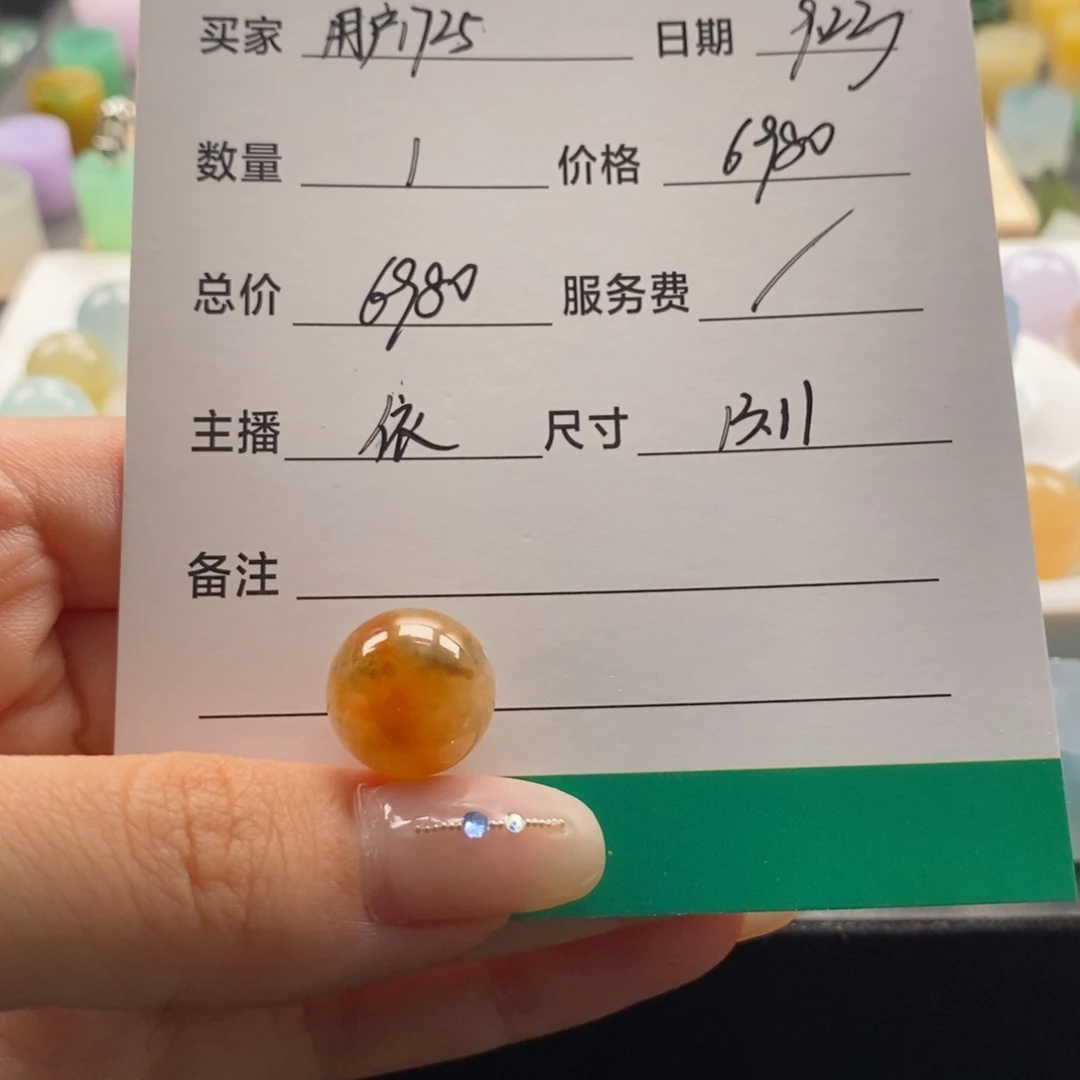 买家 用户1725 日期 9.22
数量 1 价格 6980
总价 6980 服务费 /
主播 依 尺寸 13.11
备注